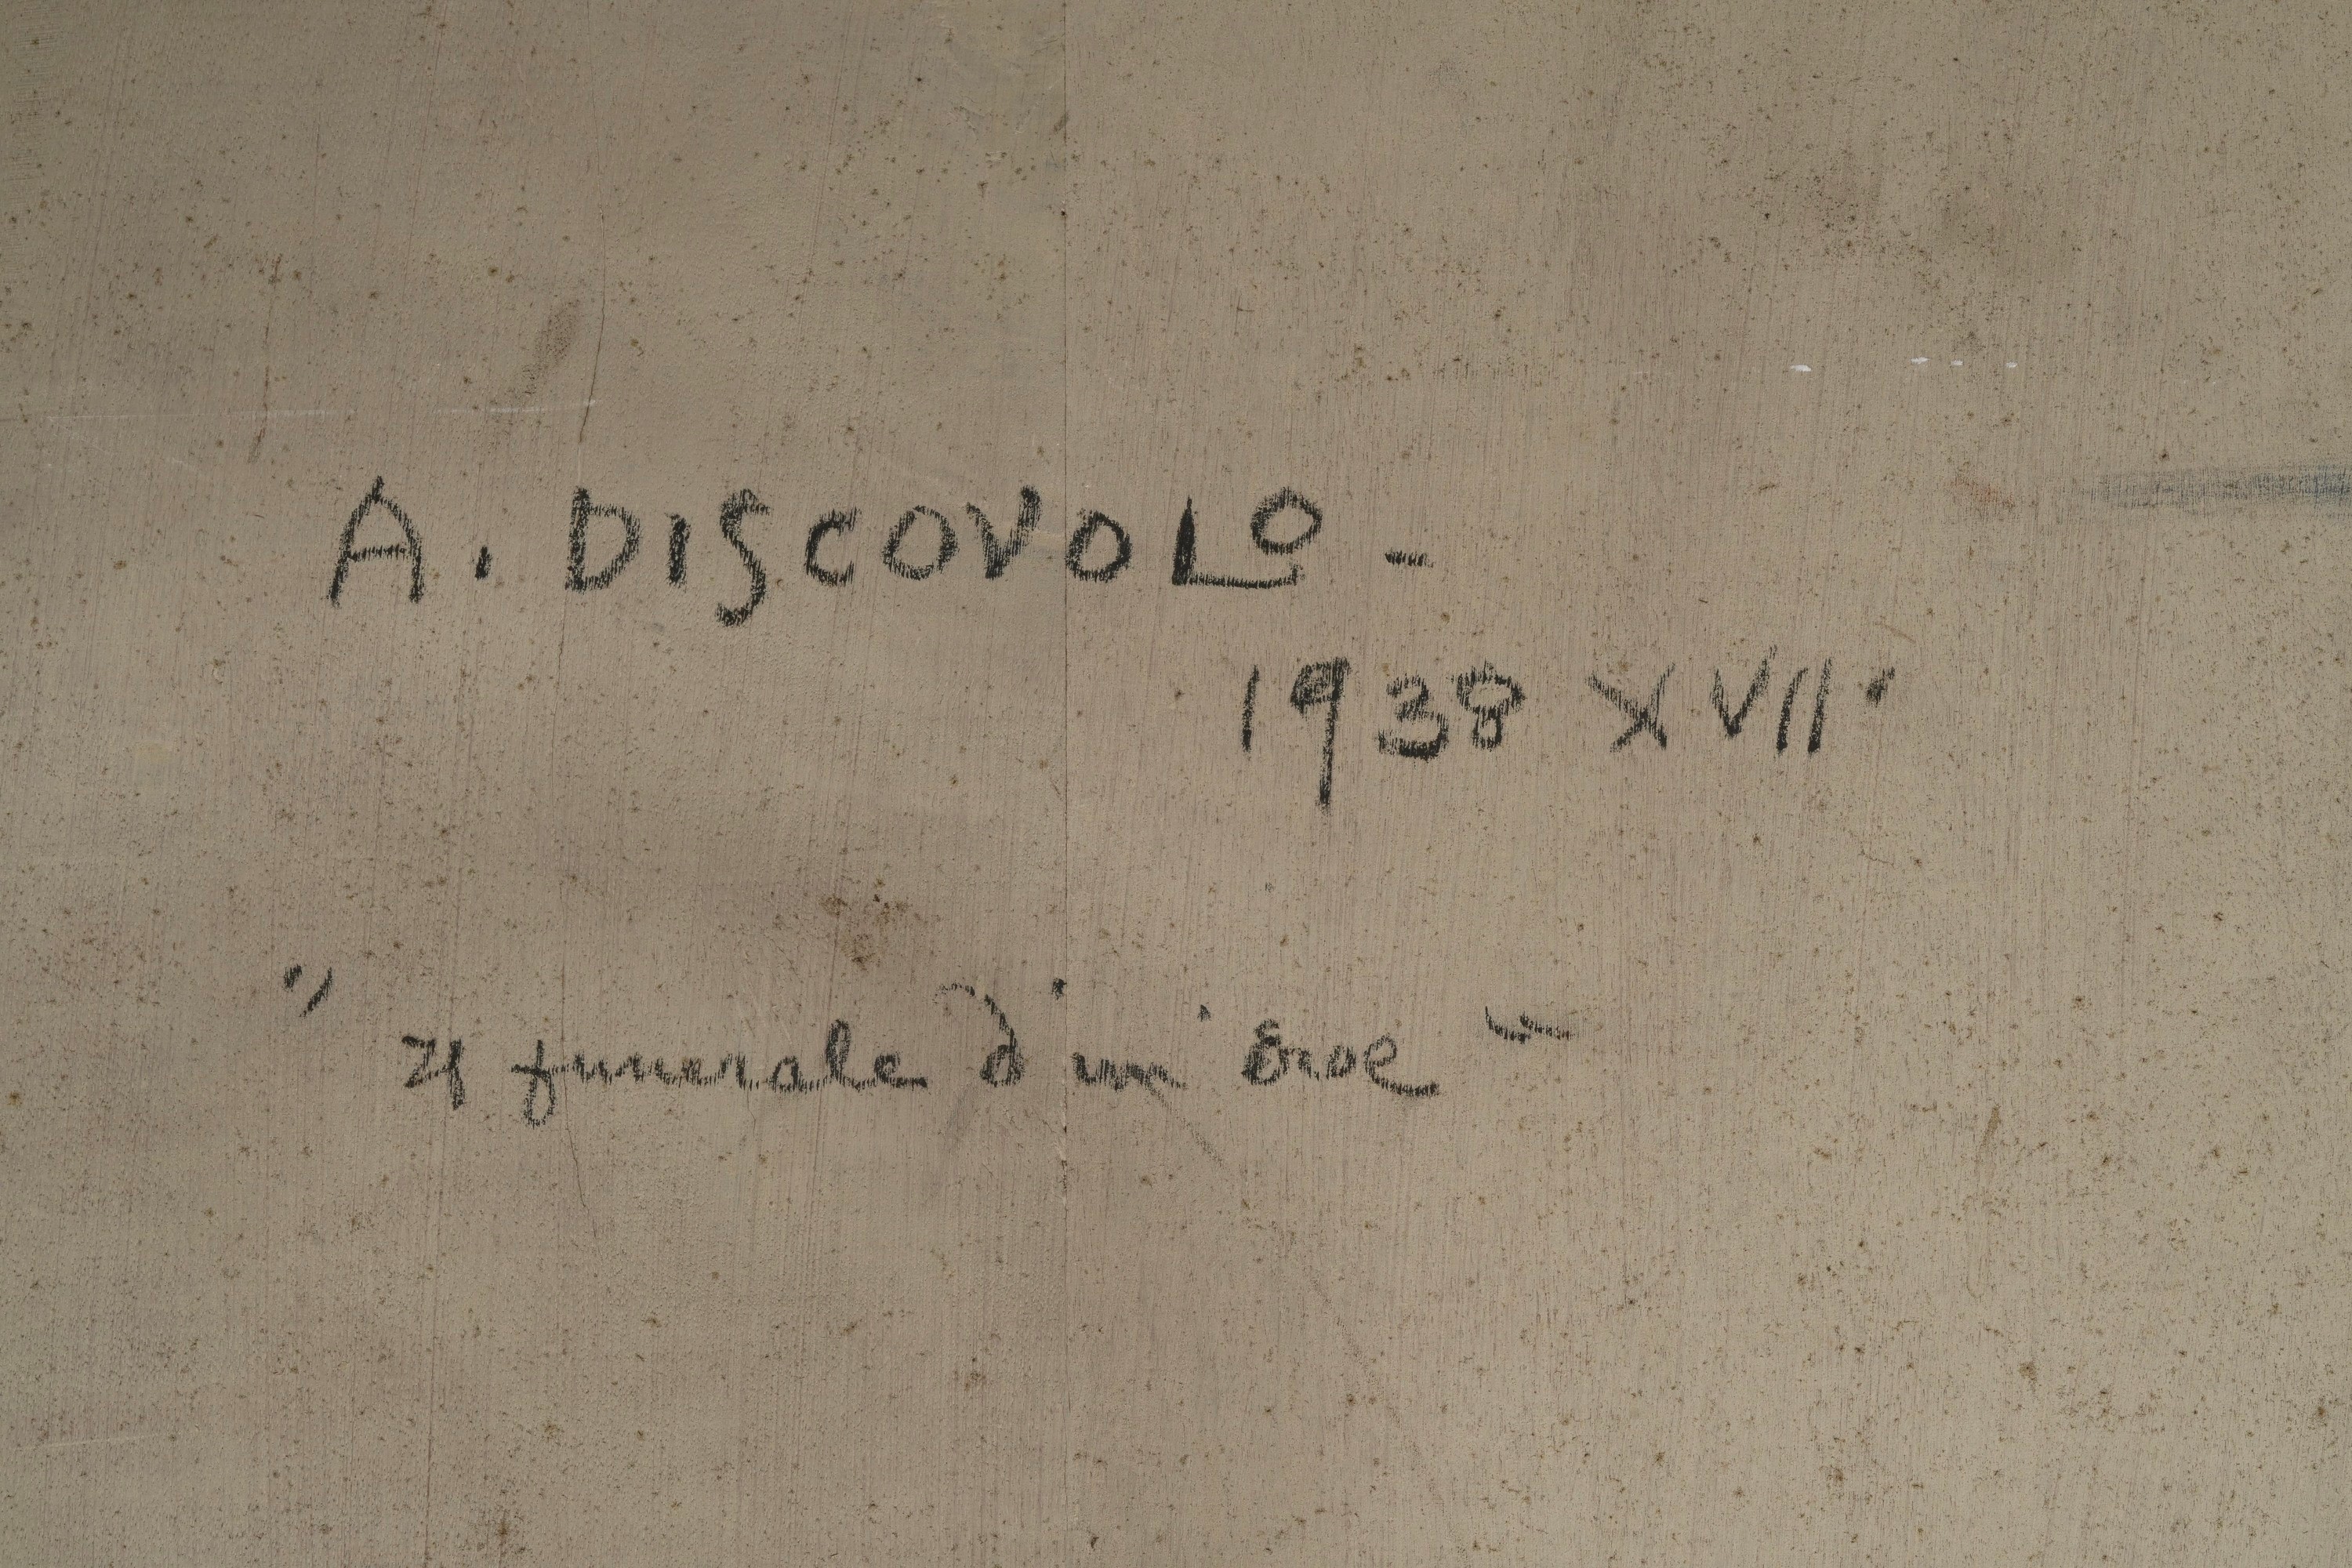 A. DISCOVOLO -
1938 XVII·
" Il funerale d'un'Eroe "